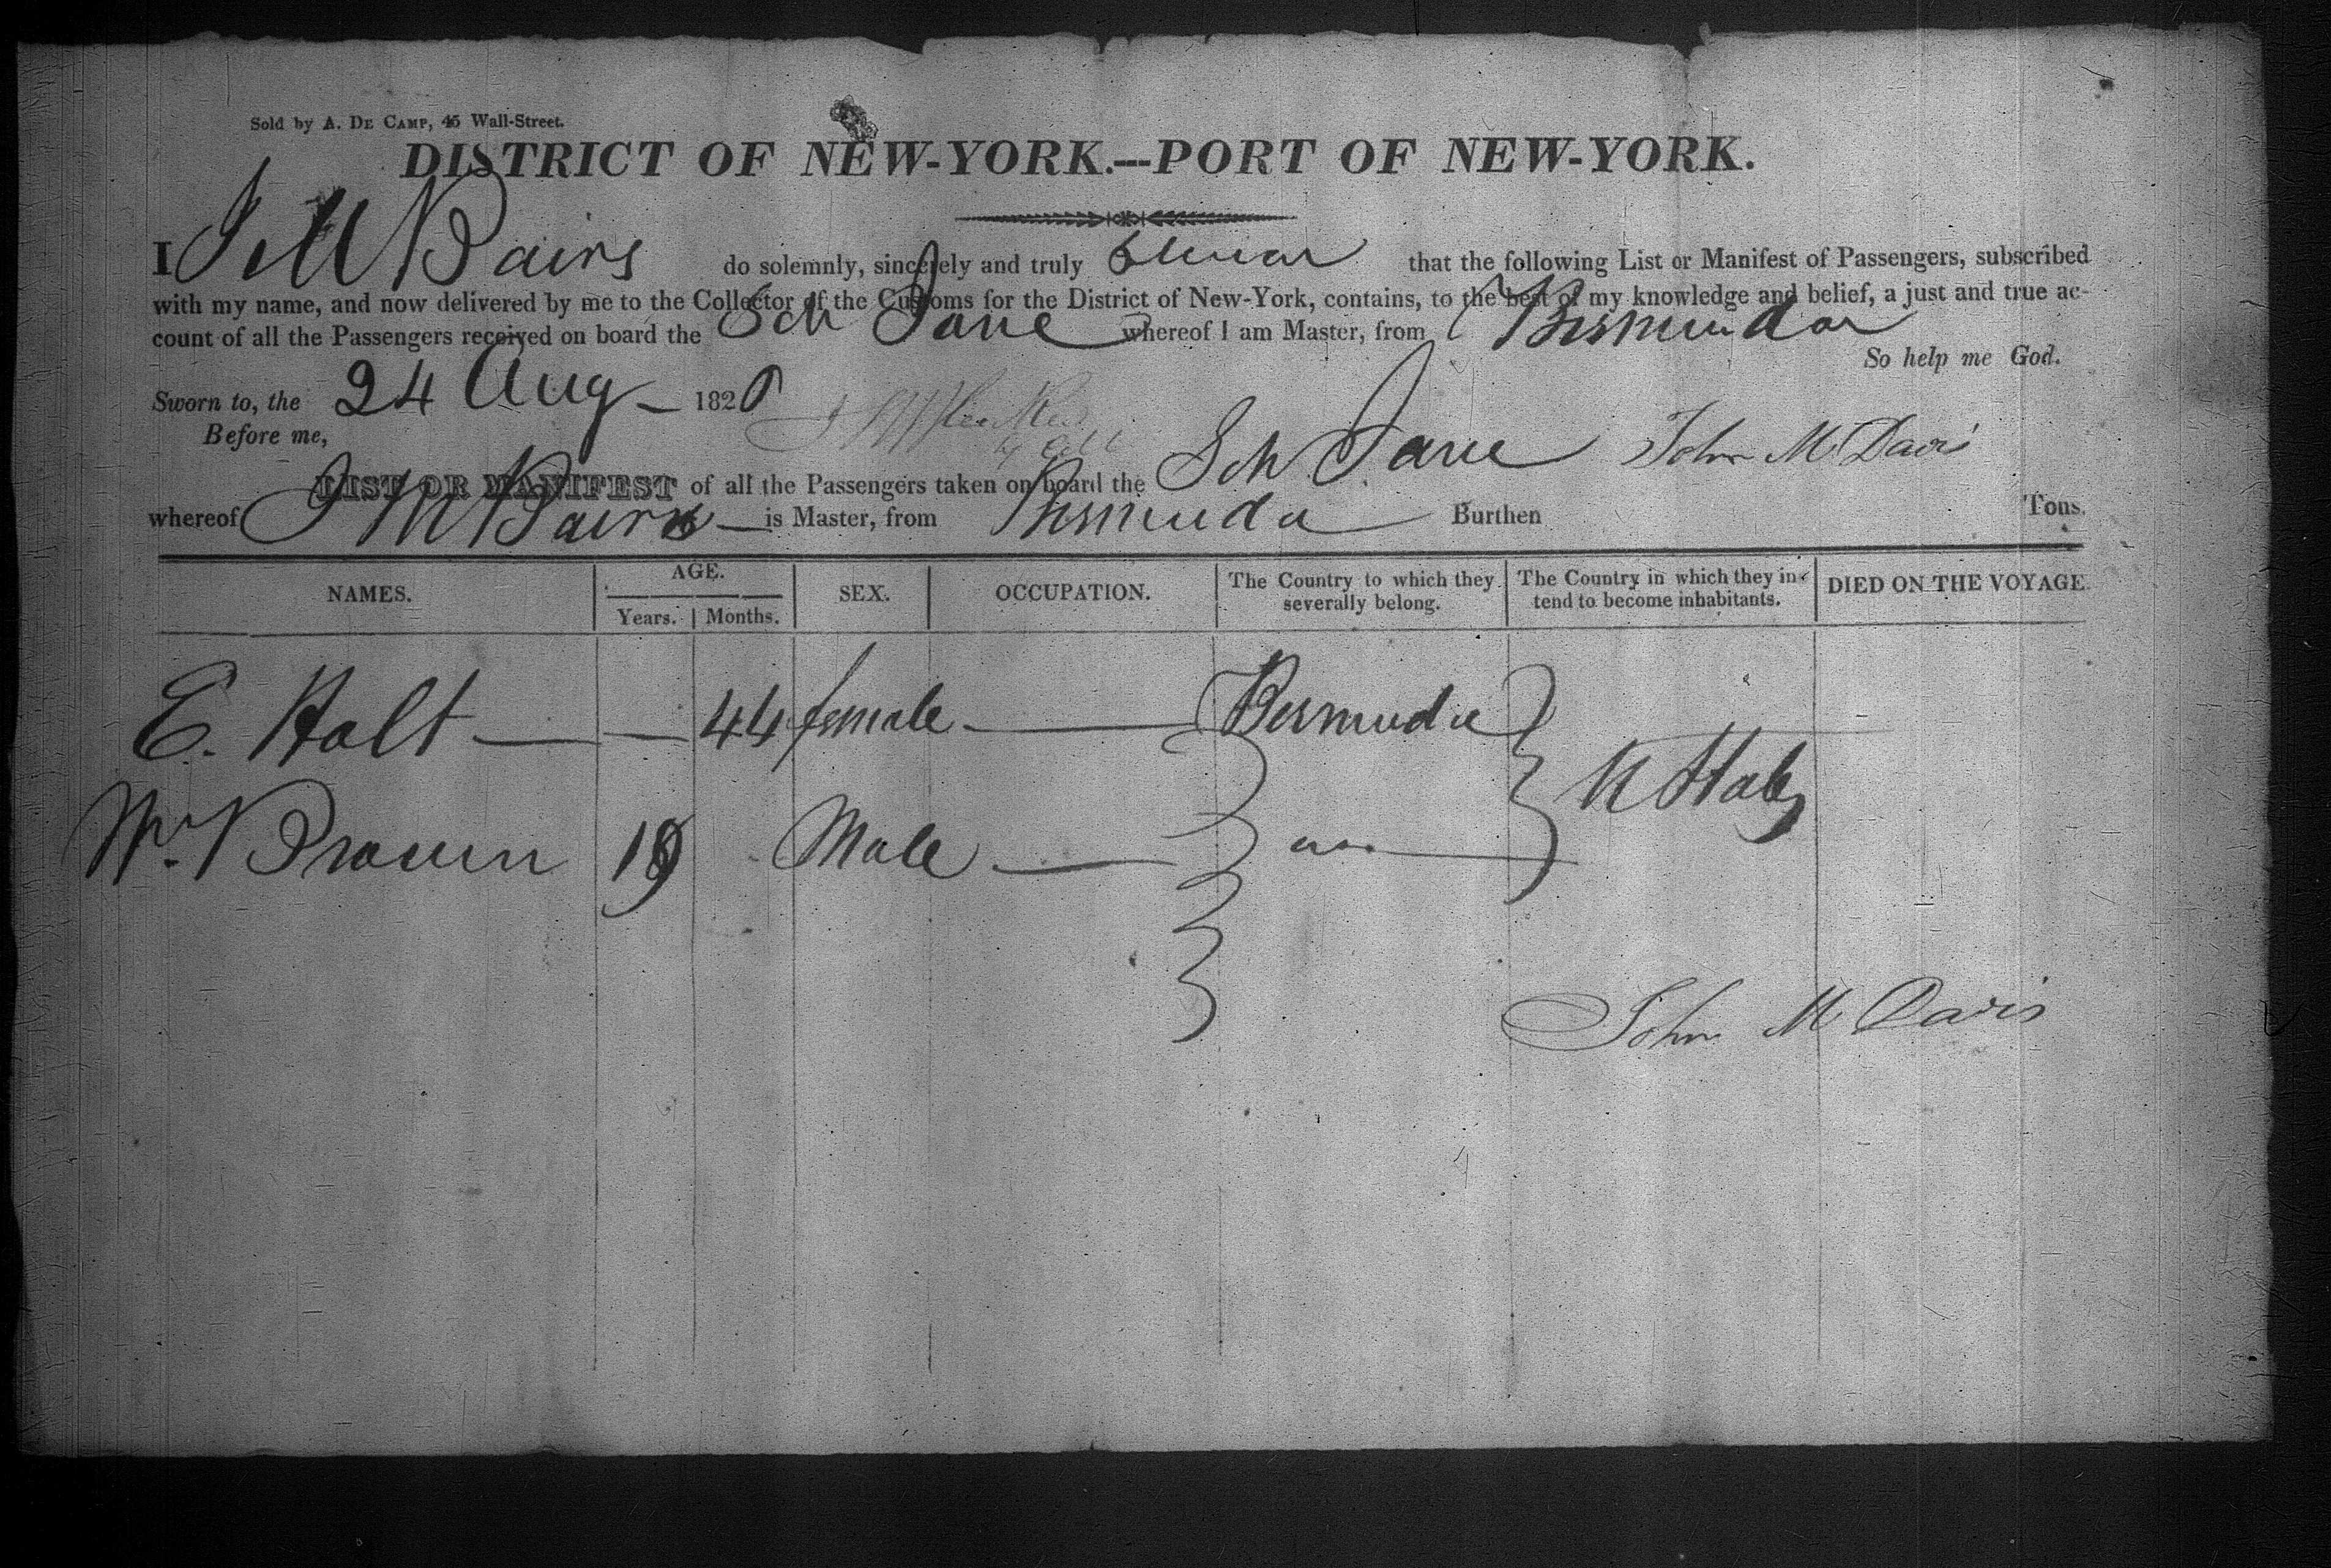 Sold by A. DE CAMP, 45 Wall-Street.
DISTRICT OF NEW-YORK.—PORT OF NEW-YORK.
I J M Bairs do solemnly, sincerely and truly swear that the following List or Manifest of Passengers, subscribed
with my name, and now delivered by me to the Collector of the Customs for the District of New-York, contains, to the best of my knowledge and belief, a just and true ac-
count of all the Passengers received on board the Sch Jane whereof I am Master, from Bermuda
So help me God.
Sworn to, the 24 Aug 1820
Before me,
John M Davis
LIST OR MANIFEST of all the Passengers taken on board the Sch Jane
whereof J M Bairs is Master, from Bermuda Burthen Tons.
NAMES. AGE. Years. Months. SEX. OCCUPATION. The Country to which they severally belong. The Country in which they intend to become inhabitants. DIED ON THE VOYAGE.
E. Holt — — 44 female — Bermuda
U States
Wm. Brown 19 Male —
John M Davis